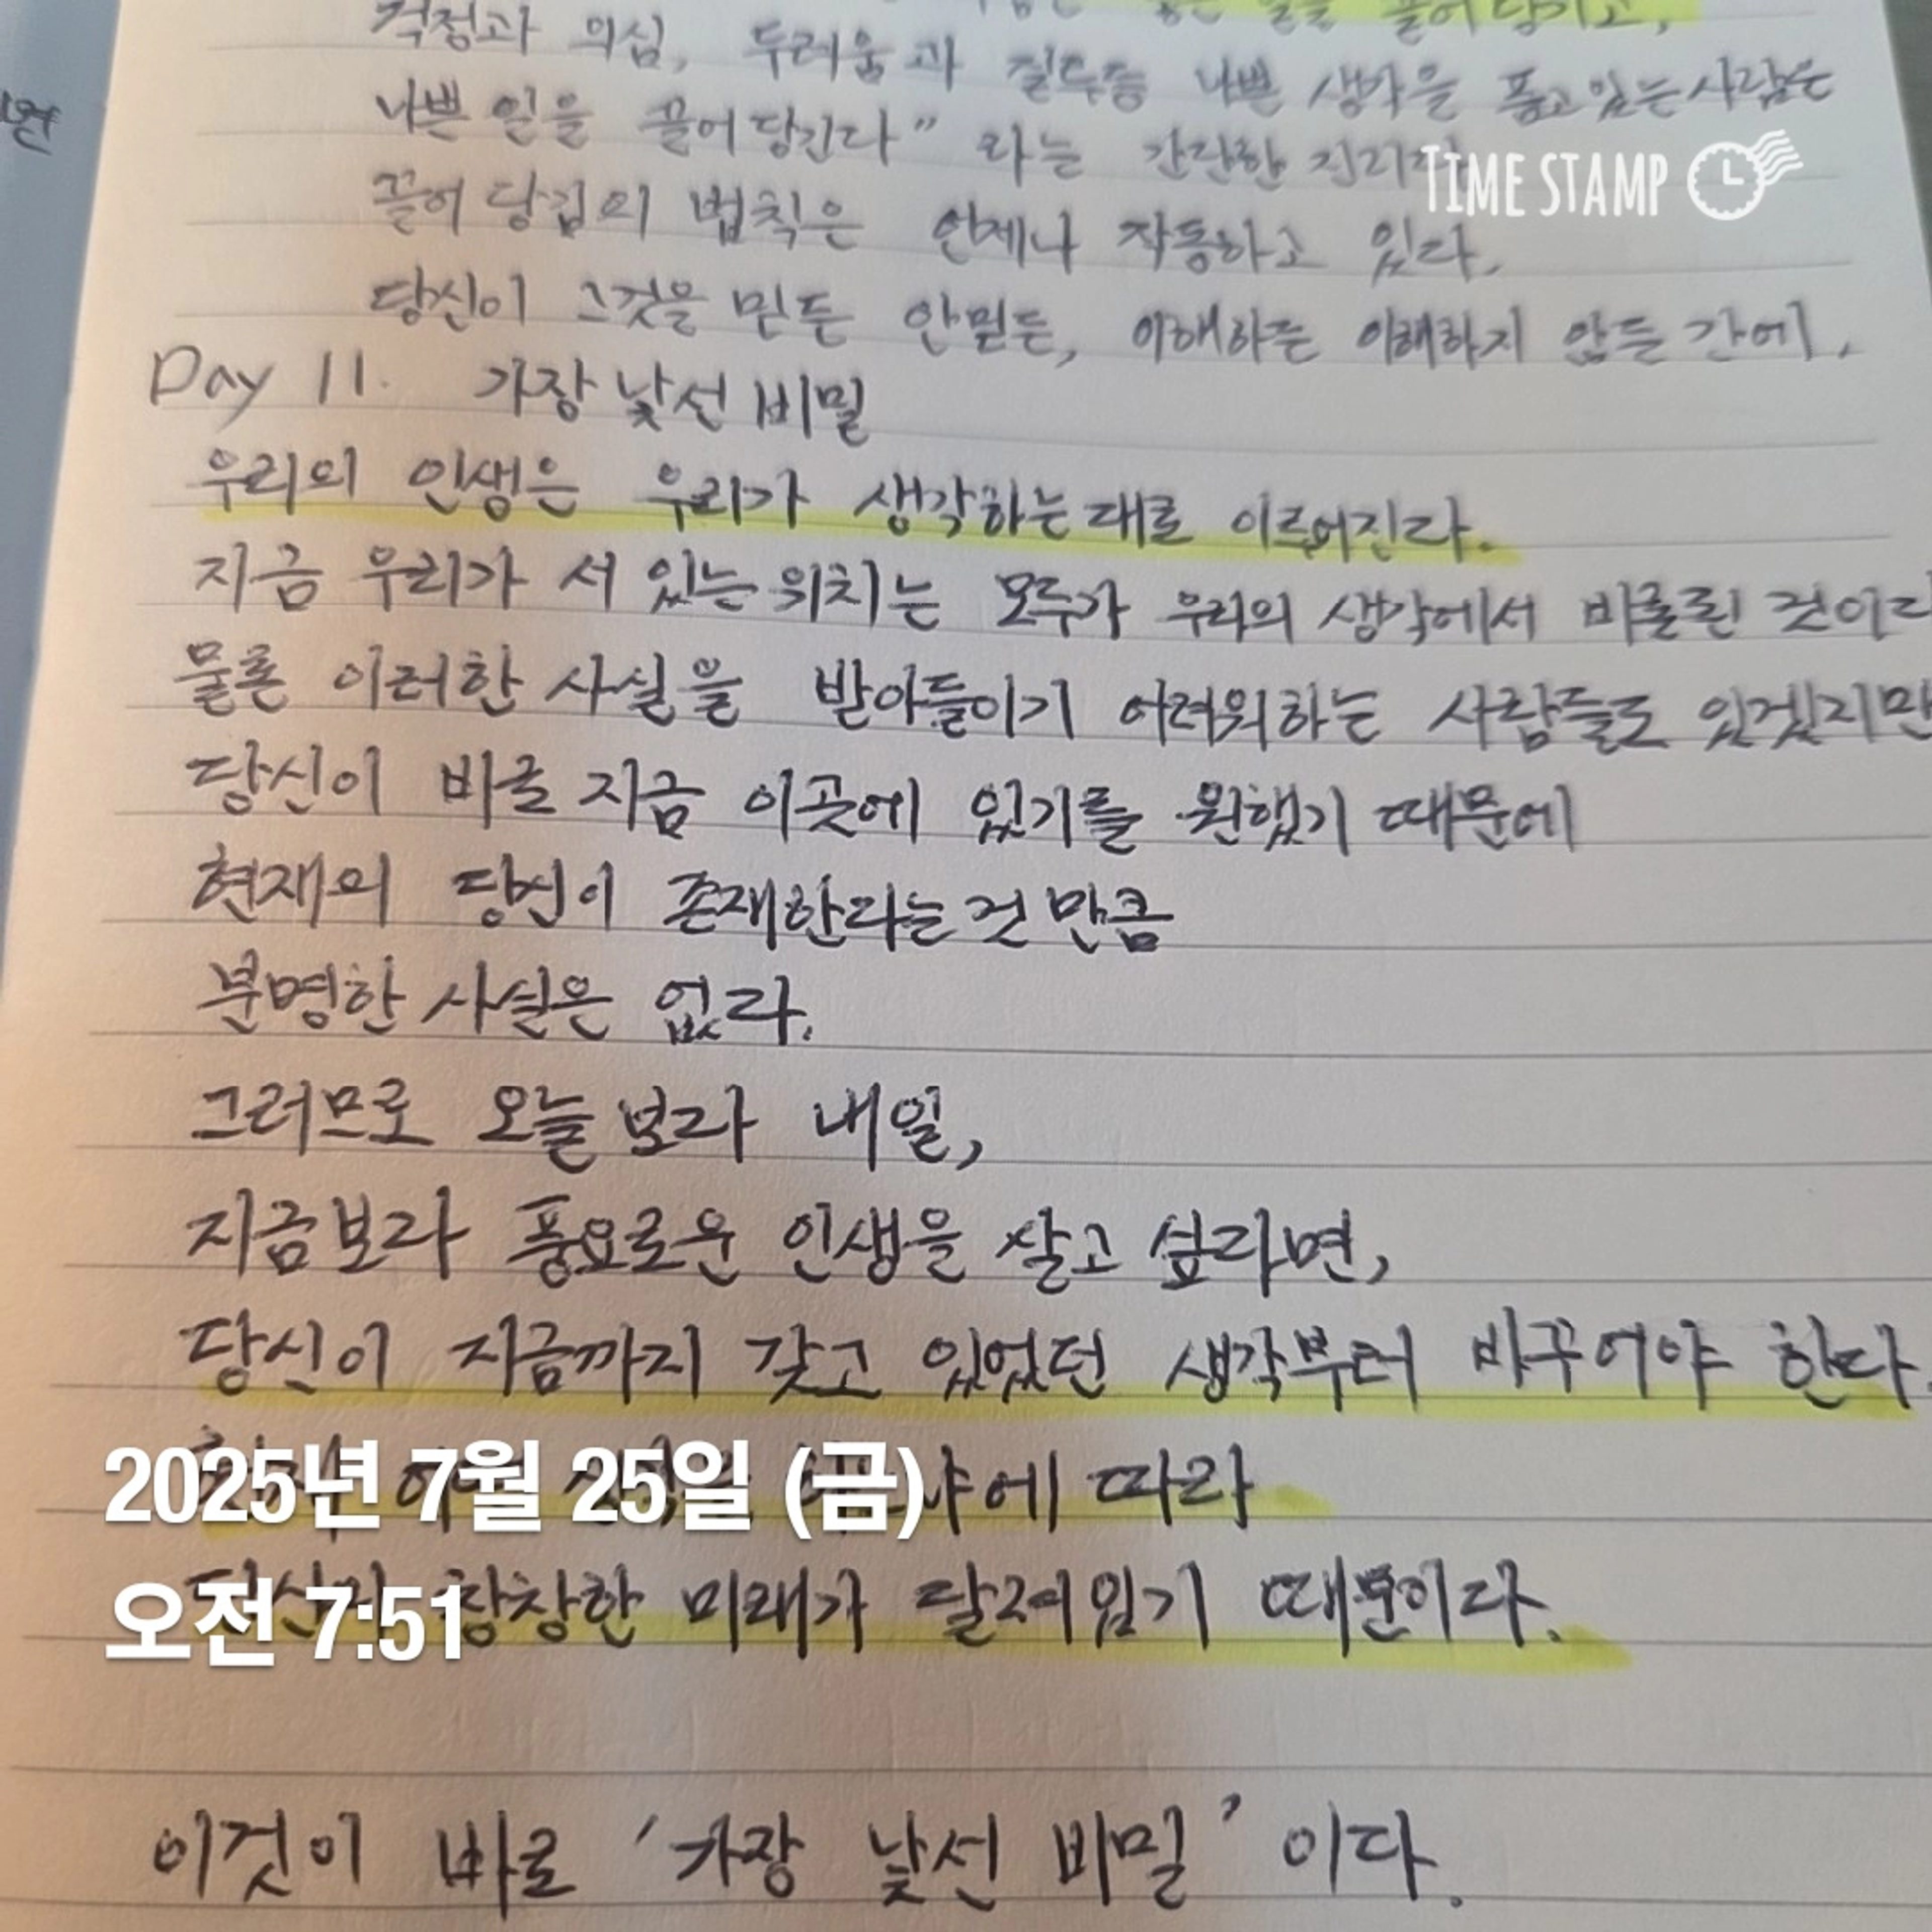 끌어당기고,
걱정과 의심, 두려움과 질투등 나쁜 생각을 품고있는사람은
나쁜 일을 끌어당긴다" 라는 간단한 진리다
TIME STAMP
끌어당김의 법칙은 언제나 작동하고 있다.
당신이 그것을 믿든 안믿든, 이해하든 이해하지 않든 간에.
Day 11. 가장 낯선 비밀
우리의 인생은 우리가 생각하는대로 이루어진다.
지금 우리가 서 있는 위치는 모두가 우리의 생각에서 비롤린 것이다
물론 이러한 사실을 받아들이기 어려워하는 사람들도 있겠지만
당신이 바로 지금 이곳에 있기를 원했기 때문에
현재의 당신이 존재한다는것 만큼
분명한 사실은 없다.
그러므로 오늘보다 내일,
지금보다 풍요로운 인생을 살고 싶다면,
당신이 지금까지 갖고 있었던 생각부터 바꾸어야 한다.
2025년 7월 25일 (금)
에 따라
오전 7:51
창창한 미래가 달려있기 때문이다.
이것이 바로 '가장 낯선 비밀' 이다.